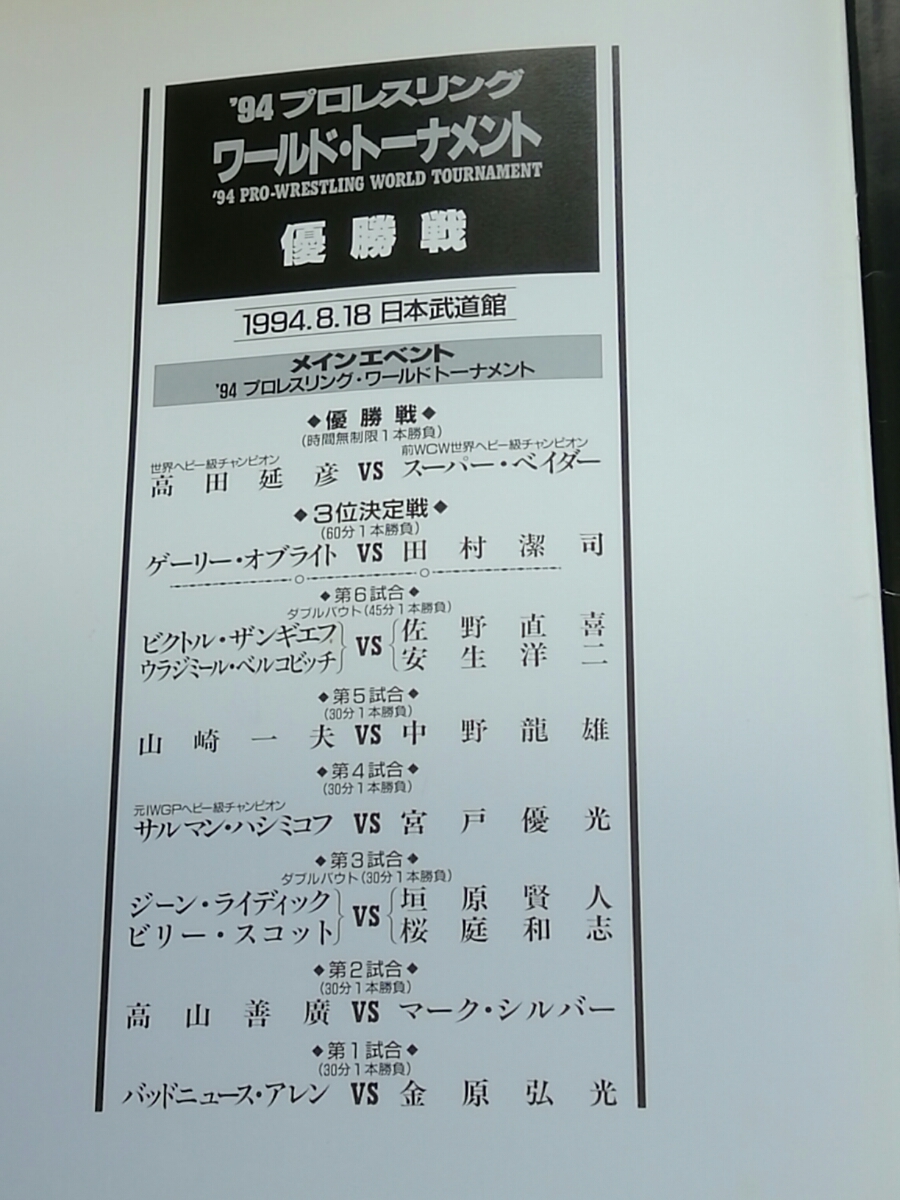 '94 プロレスリング
ワールド・トーナメント
'94 PRO-WRESTLING WORLD TOURNAMENT
優勝戦
1994.8.18 日本武道館
メインエベント
'94 プロレスリング・ワールドトーナメント
◆優勝戦◆
(時間無制限1本勝負)
世界ヘビー級チャンピオン 前WCW世界ヘビー級チャンピオン
高田延彦 VS スーパー・ベイダー
◆3位決定戦◆
(60分1本勝負)
ゲーリー・オブライト VS 田村潔司
◆第6試合◆
ダブルバウト(45分1本勝負)
ビクトル・ザンギエフ 佐野直喜
VS
ウラジミール・ベルコビッチ 安生洋二
◆第5試合◆
(30分1本勝負)
山崎一夫 VS 中野龍雄
◆第4試合◆
(30分1本勝負)
元IWGPヘビー級チャンピオン
サルマン・ハシミコフ VS 宮戸優光
◆第3試合◆
ダブルバウト(30分1本勝負)
ジーン・ライディック 垣原賢人
VS
ビリー・スコット 桜庭和志
◆第2試合◆
(30分1本勝負)
高山善廣 VS マーク・シルバー
◆第1試合◆
(30分1本勝負)
バッドニュース・アレン VS 金原弘光